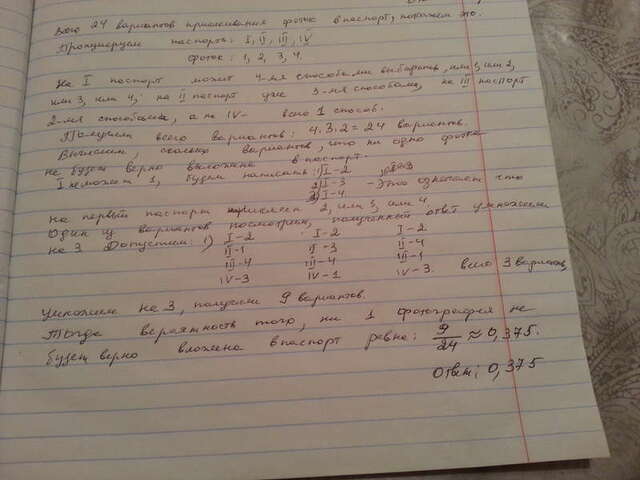 Всего 24 вариантов приклеивания фоток в паспорт, покажем это.
Пронумеруем паспорта: I, II, III, IV
фотки: 1, 2, 3, 4.
На I паспорт может 4-мя способами выбирать, или 1, или 2,
или 3, или 4; на II паспорт уже 3-мя способами, на III паспорт
2-мя способами, а на IV- всего 1 способ.
Получим всего вариантов: 4·3·2=24 вариантов.
Вычислим, сколько вариантов, что ни одно фотка
не будет верно вложена в паспорт.
I не может 1, будем писать: 1) I-2
2) I-3 - это означает что
3) I-4
на первый паспорт наклеили 2, или 3, или 4
Один из вариантов посмотрим, полученный ответ умножаем
на 3 Допустим: 1) I-2 I-2 I-2
II-1 II-3 II-4
III-4 III-4 III-1
IV-3 IV-1 IV-3. всего 3 варианта,
умножаем на 3, получим 9 вариантов.
Тогда вероятность того, ни 1 фотография не
будет верно вложена в паспорт равна: 9/24 ≈ 0,375.
Ответ: 0,375